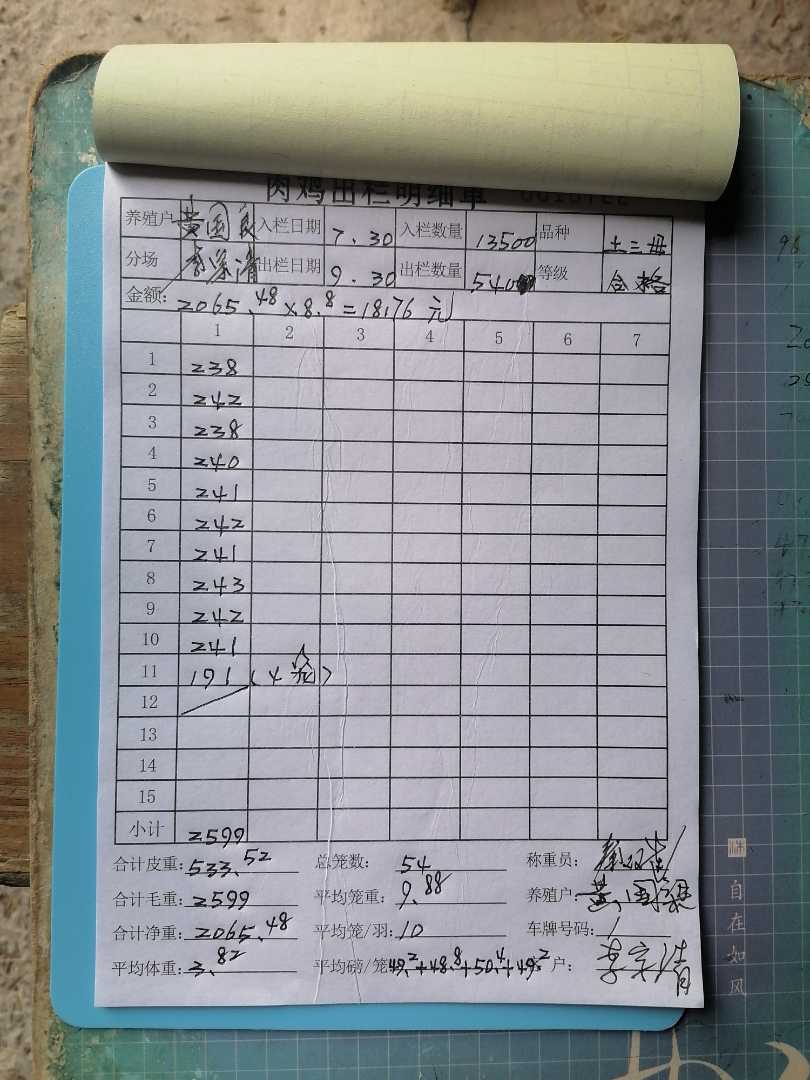 肉鸡出栏明细单
养殖户 黄国良 入栏日期 7.30 入栏数量 13500 品种 土二毋
分场 出栏日期 9.30 出栏数量 540 等级 合格
金额: 2065.48×8.8=18176元
1 2 3 4 5 6 7
1 238
2 242
3 238
4 240
5 241
6 242
7 241
8 243
9 242
10 241
11 191(4笼)
12
13
14
15
小计 2599
合计皮重: 533.52 总笼数: 54 称重员:
合计毛重: 2599 平均笼重: 9.88 养殖户: 黄国
合计净重: 2065.48 平均笼/羽: 10 车牌号码: /
平均体重: 3.82 平均磅/笼 49.2+48.8+50.4+49.2 户:
自在如风